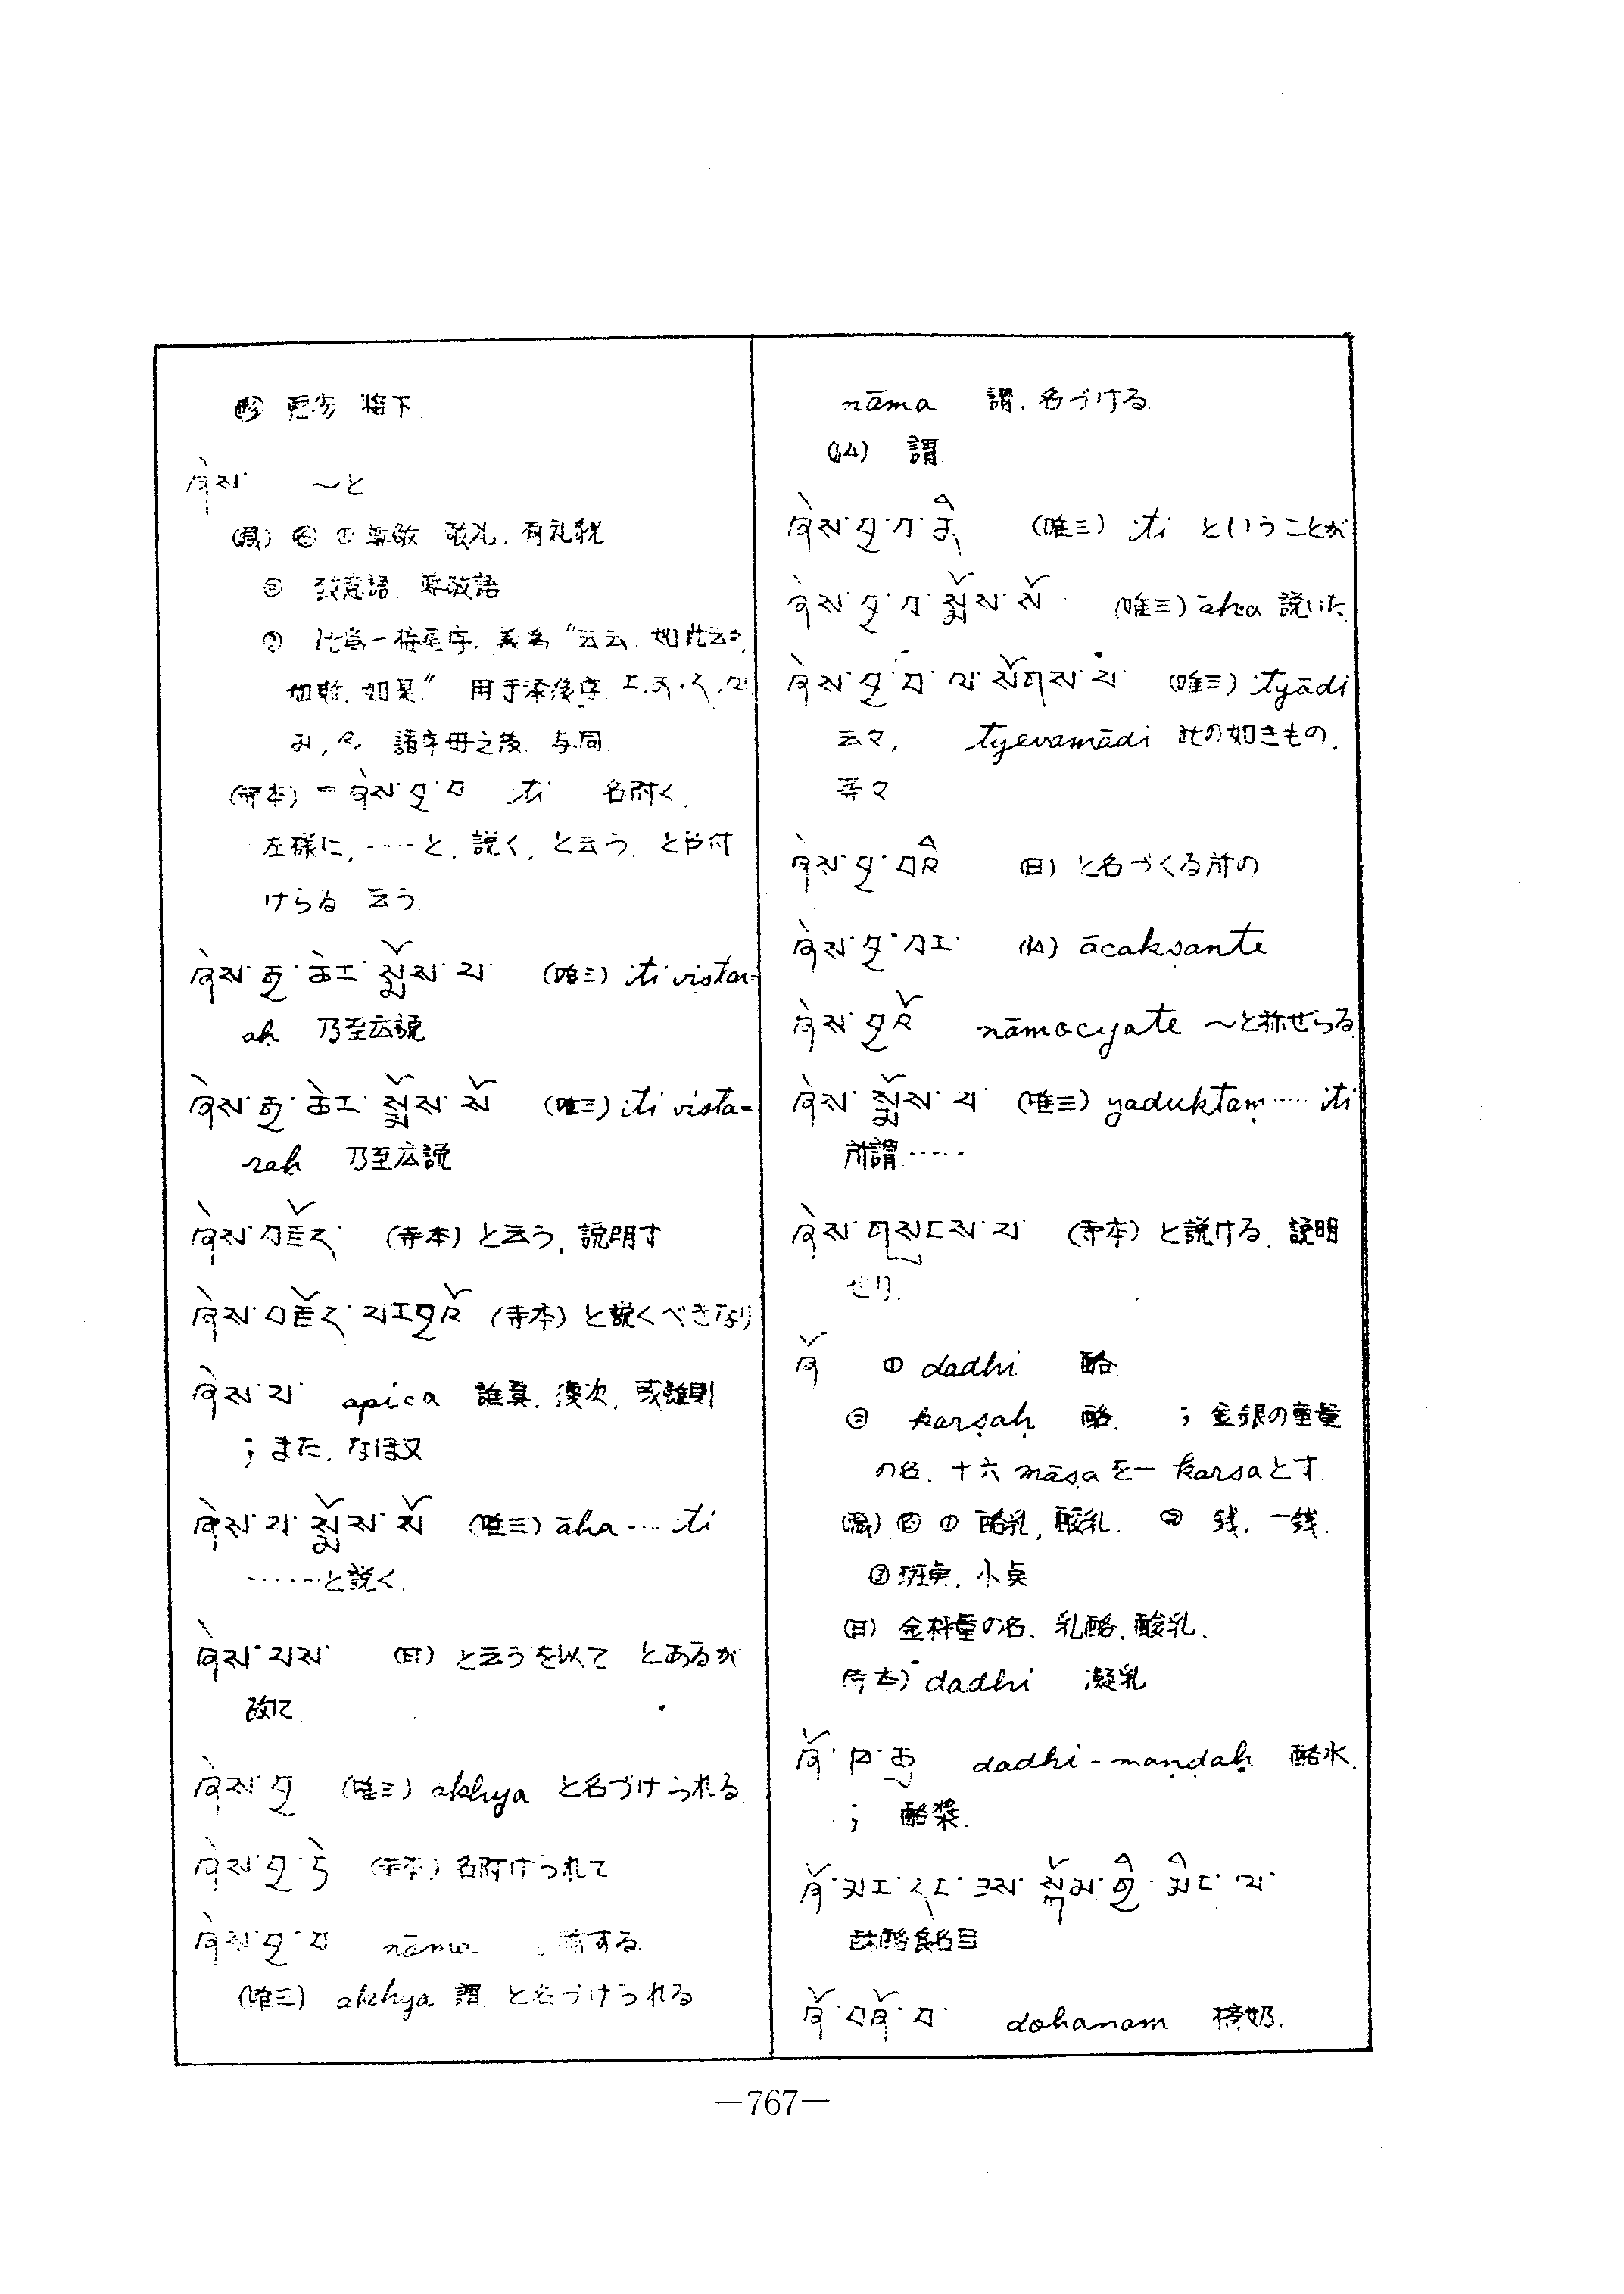 ㊕ 更劣 稍下
ཞེས་ ～と
(風) ㊔ ① 尊敬 敬礼. 有礼貌
② 致意語 尊敬語
③ 此爲一接尾字. 義為 “云云. 如此云云,
如斯. 如是” 用于添後字 ར, ན, ད, ལ
མ, འ, 諸字母之後. 与同.
(寺本) = ཞེས་བྱ་བ iti 名附く.
左様に, ‥‥と, 説く, と云う, と名付
けらる 云う.
ཞེས་རྒྱ་ཆེར་སྨོས་པ (唯三) iti vistar-
aḥ 乃至広説
ཞེས་རྒྱ་ཆེར་སྨོས་སོ (唯三) iti vista-
raḥ 乃至広説
ཞེས་བརྗོད་ (寺本) と云う, 説明す.
ཞེས་བརྗོད་པརབྱའོ (寺本) と説くべきなり
ཞེས་པ་ apica 復次, 或雖則
; また. なほ又
ཞེས་པ་སྨོས་སོ (唯三) āha ‥‥ iti
‥‥‥と説く.
ཞེས་པས (日) と云うを以て とあるが
故に.
ཞེས་བྱ (唯三) akhya と名づけられる.
ཞེས་བྱ་སྟེ (寺本) 名附けられて
ཞེས་བྱ་བ nāma 称する
(唯三) akhya 謂 と名づけられる
nāma 謂. 名づける.
(仏) 謂
ཞེས་བྱ་བ་ནི (唯三) iti ということが
ཞེས་བྱ་བ་སྨོས་སོ (唯三) āha 説いた
ཞེས་བྱ་བ་ལ་སོགས་པ (唯三) ityādi
云々, ityevamādi 此の如きもの.
等々
ཞེས་བྱ་བའི (日) と名づくる所の
ཞེས་བྱ་བར་ (仏) ācakṣante
ཞེས་བྱའོ nāmocyate ～と称せらる
ཞེས་སྨོས་པ (唯三) yaduktaṃ ‥‥ iti
所謂 ‥‥‥
ཞེས་གསུངས་པ (寺本) と説ける. 説明
せり.
ཞོ ① dadhi 酪
② karṣaḥ 酪. ; 金銀の重量
の名. 十六 māṣa を一 karsa とす
(風) ㊔ ① 酪乳, 酸乳. ② 銭. 一銭.
③ 斑点, 小点.
(日) 金秤量の名. 乳酪. 酸乳.
(寺本) dadhi 凝乳
ཞོ་ཁ་ཆུ dadhi-maṇḍaḥ 酪水.
; 酪漿.
ཞོ་མར་དང་ཟས་སྐོམ་གྱི་མིང་ལ་
酥酪食名目
ཞོ་བཞོ་བ་ dohanam 搾奶.
—767—